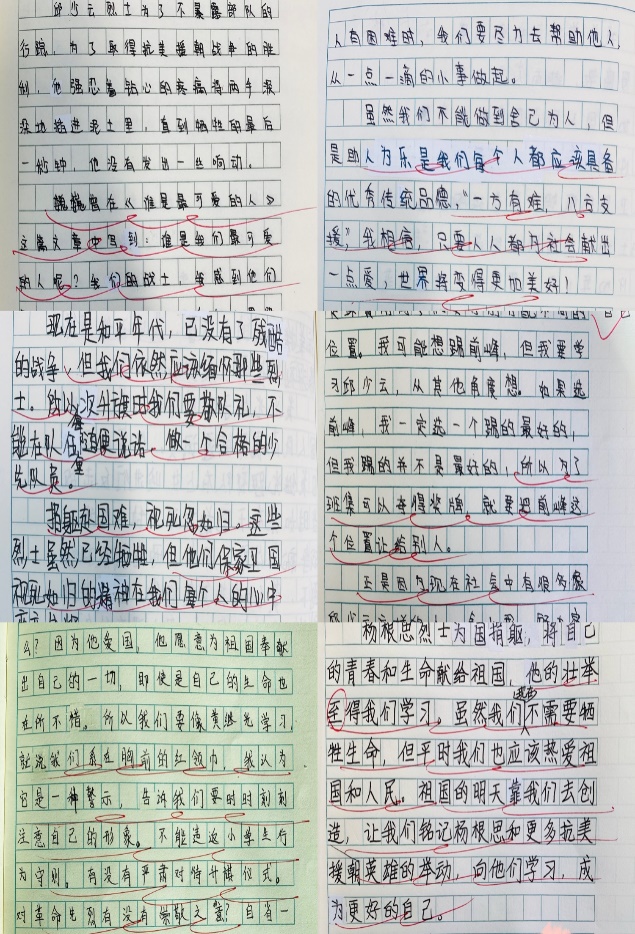 邱少云烈士为了不暴露部队的
行踪，为了取得抗美援朝战争的胜
利，他强忍着钻心的疼痛将两手深
深地插进泥土里，直到牺牲的最后
一秒钟，他没有发出一丝响动。
魏巍曾在《谁是最可爱的人》
这篇文章中写到：谁是我们最可爱
的人呢？我们的战士，我感到他们
人有困难时，我们要尽力去帮助他人，
从一点一滴的小事做起。
虽然我们不能做到舍己为人，但
是助人为乐是我们每个人都应该具备
的优秀传统品德，“一方有难，八方支
援”，我相信，只要人人都为社会献出
一点爱，世界将变得更加美好！
现在是和平年代，已没有了残酷
的战争，但我们依然应该缅怀那些烈
士。所以次升旗时我们要敬队礼，不
能在队伍里随便说话。做一个合格的少
先队员。
捐躯赴国难，视死忽如归。这些
烈士虽然已经牺牲，但他们保家卫国
视死如归的精神在我们每个人的心中
位置。我可能想踢前峰，但我要学
习邱少云，从其他角度想。如果选
前峰，我一定选一个踢的最好的，
但我踢的并不是最好的，所以为了
班集可以夺得奖牌，就要把前峰这
个位置让给别人。
正是因为现在社会中有很多象
么？因为他爱国，他愿意为祖国奉献
出自己的一切，即使是自己的生命也
在所不惜。所以我们要像黄继光学习，
就说我们系在胸前的红领巾，我认为
它是一种警示，告诉我们要时时刻刻
注意自己的形象。不能违返小学生行
为守则。有没有严肃对待升旗仪式。
对革命先烈有没有崇敬之意？自省一
杨根思烈士为国捐躯，将自己
的青春和生命献给祖国，他的壮举
至得我们学习。虽然我们不需要牺
牲生命，但平时我们也应该热爱祖
国和人民。祖国的明天靠我们去创
造，让我们铭记杨根思和更多抗美
援朝英雄的举动，向他们学习，成
为更好的自己。